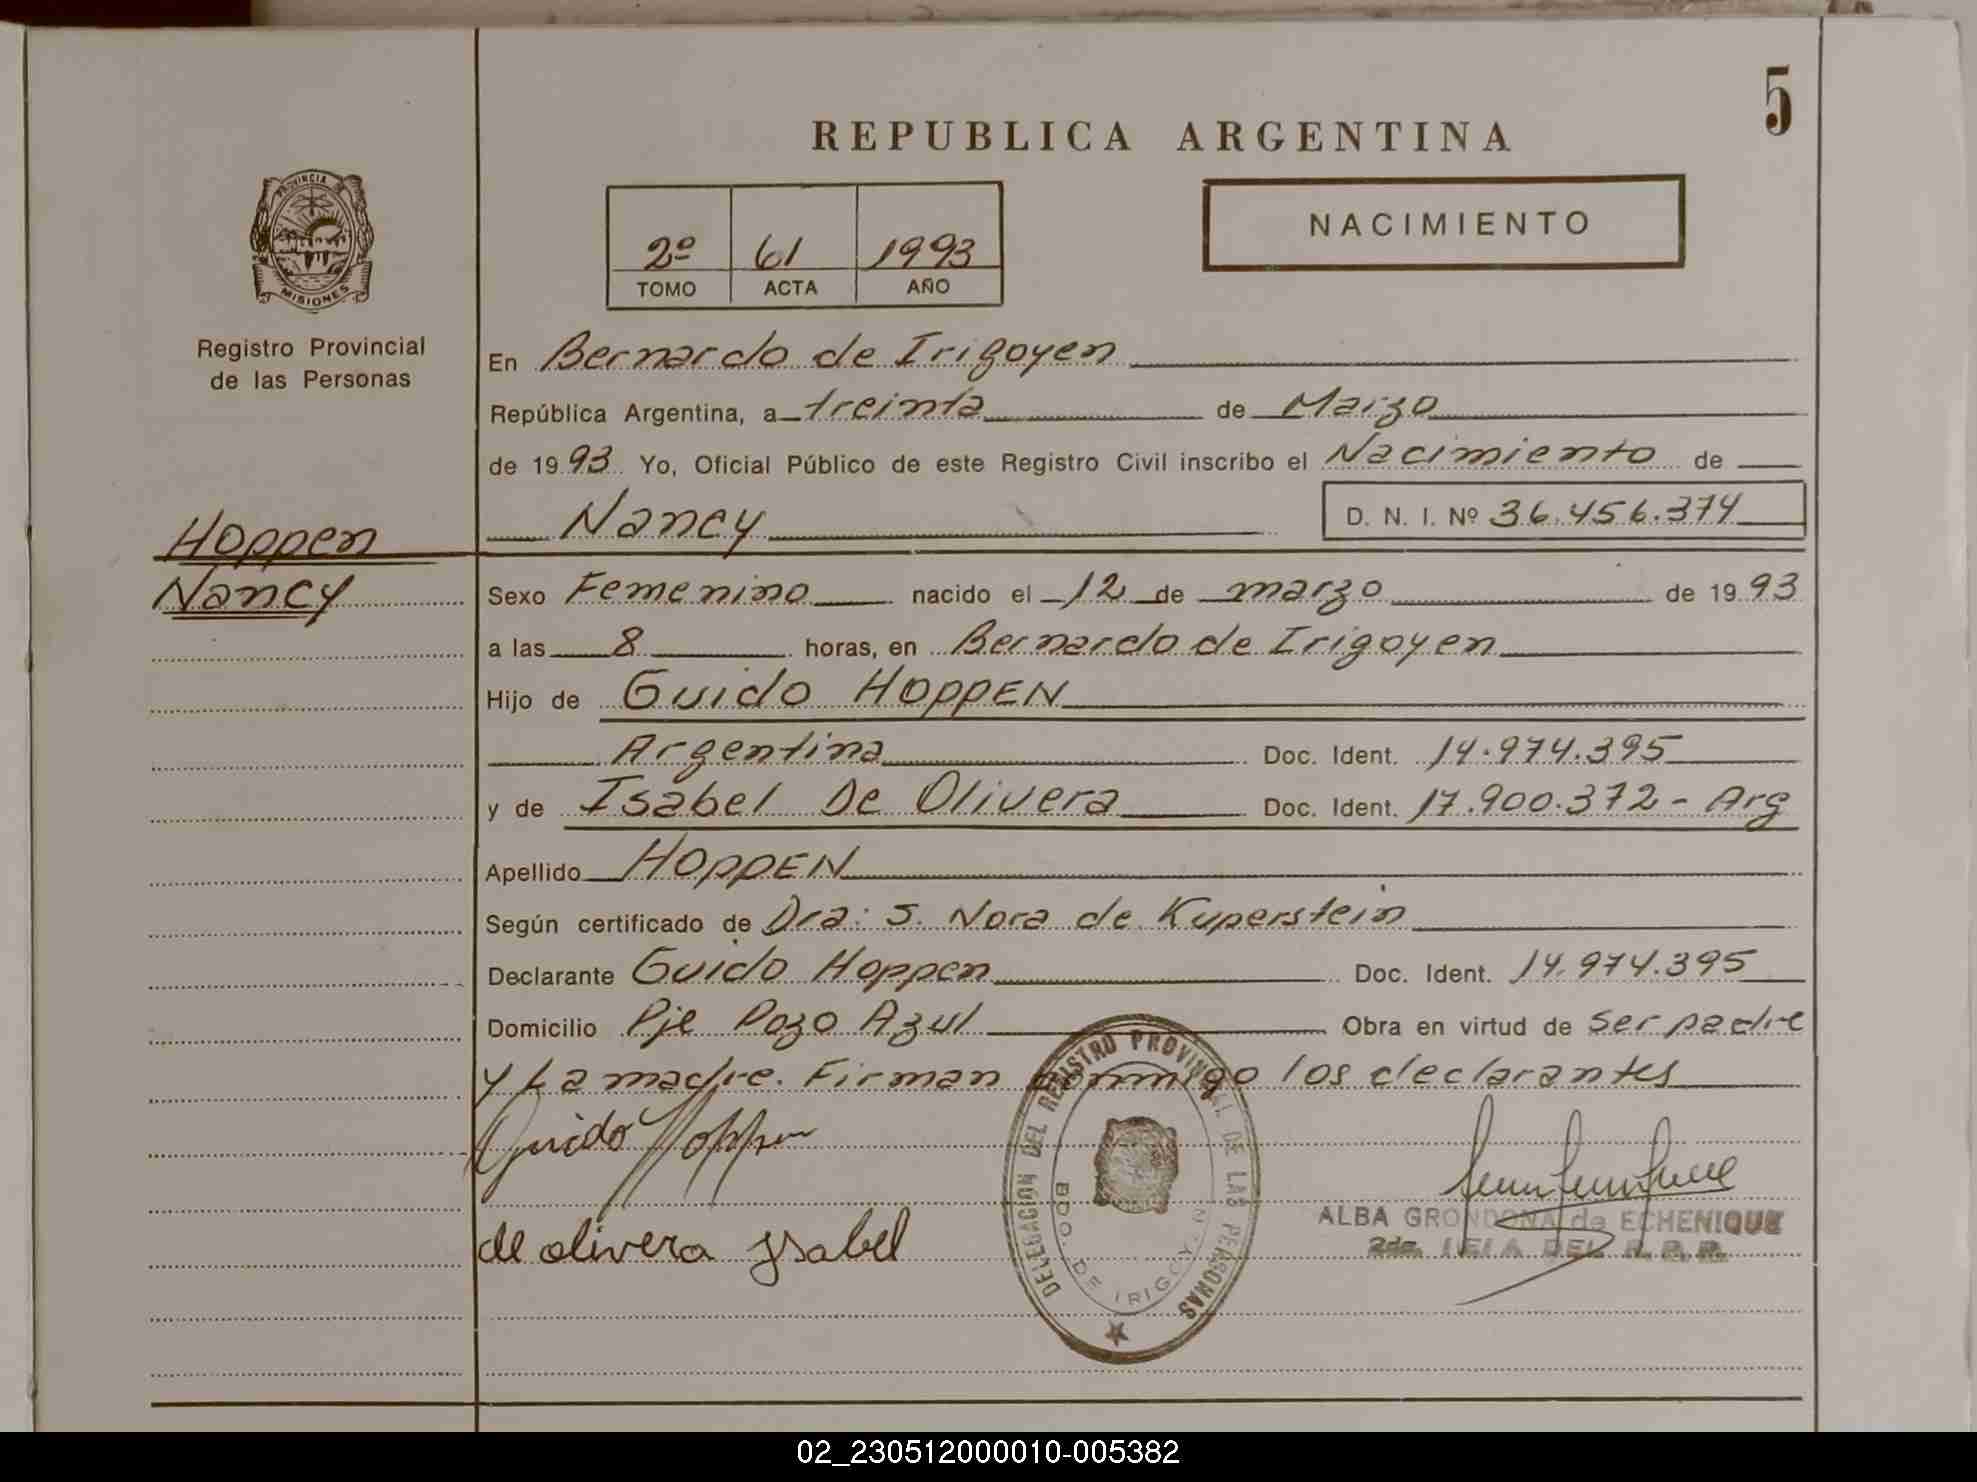 5
REPUBLICA ARGENTINA
PROVINCIA DE
MISIONES
NACIMIENTO
2º 61 1993
TOMO ACTA AÑO
Registro Provincial
de las Personas
En Bernardo de Irigoyen
República Argentina, a treinta de Marzo
de 1993 Yo, Oficial Público de este Registro Civil inscribo el Nacimiento de
Nancy D. N. I. Nº 36.456.374
Hoppen
Nancy
Sexo Femenino nacido el 12 de marzo de 1993
a las 8 horas, en Bernardo de Irigoyen
Hijo de Guido HoppEN
Argentina Doc. Ident. 14.974.395
y de Isabel De Olivera Doc. Ident. 17.900.372 - Arg
Apellido HoppEN
Según certificado de Dra: S. Nora de Kuperstein
Declarante Guido Hoppen Doc. Ident. 14.974.395
Domicilio Pje Pozo Azul Obra en virtud de ser padre
y La madre. Firman conmigo los declarantes
Guido Hoppen
de olivera ysabel
DELEGACION DEL REGISTRO PROVINCIAL DE LAS PERSONAS
BDO. DE IRIGOYEN
ALBA GRONDONA de ECHENIQUE
02_230512000010-005382